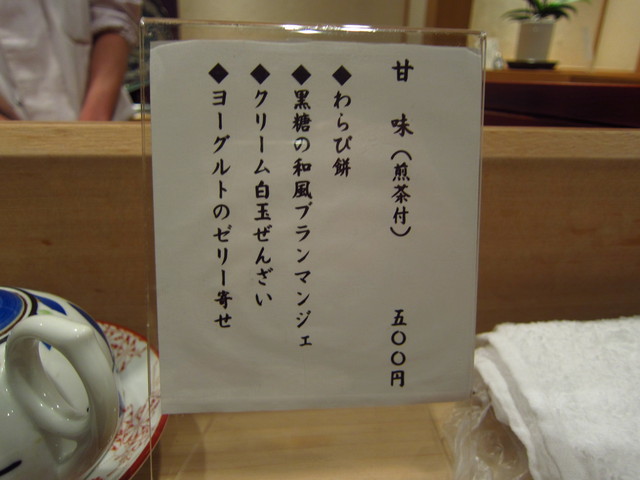 甘味（煎茶付） 五〇〇円
◆わらび餅
◆黒糖の和風ブランマンジェ
◆クリーム白玉ぜんざい
◆ヨーグルトのゼリー寄せ